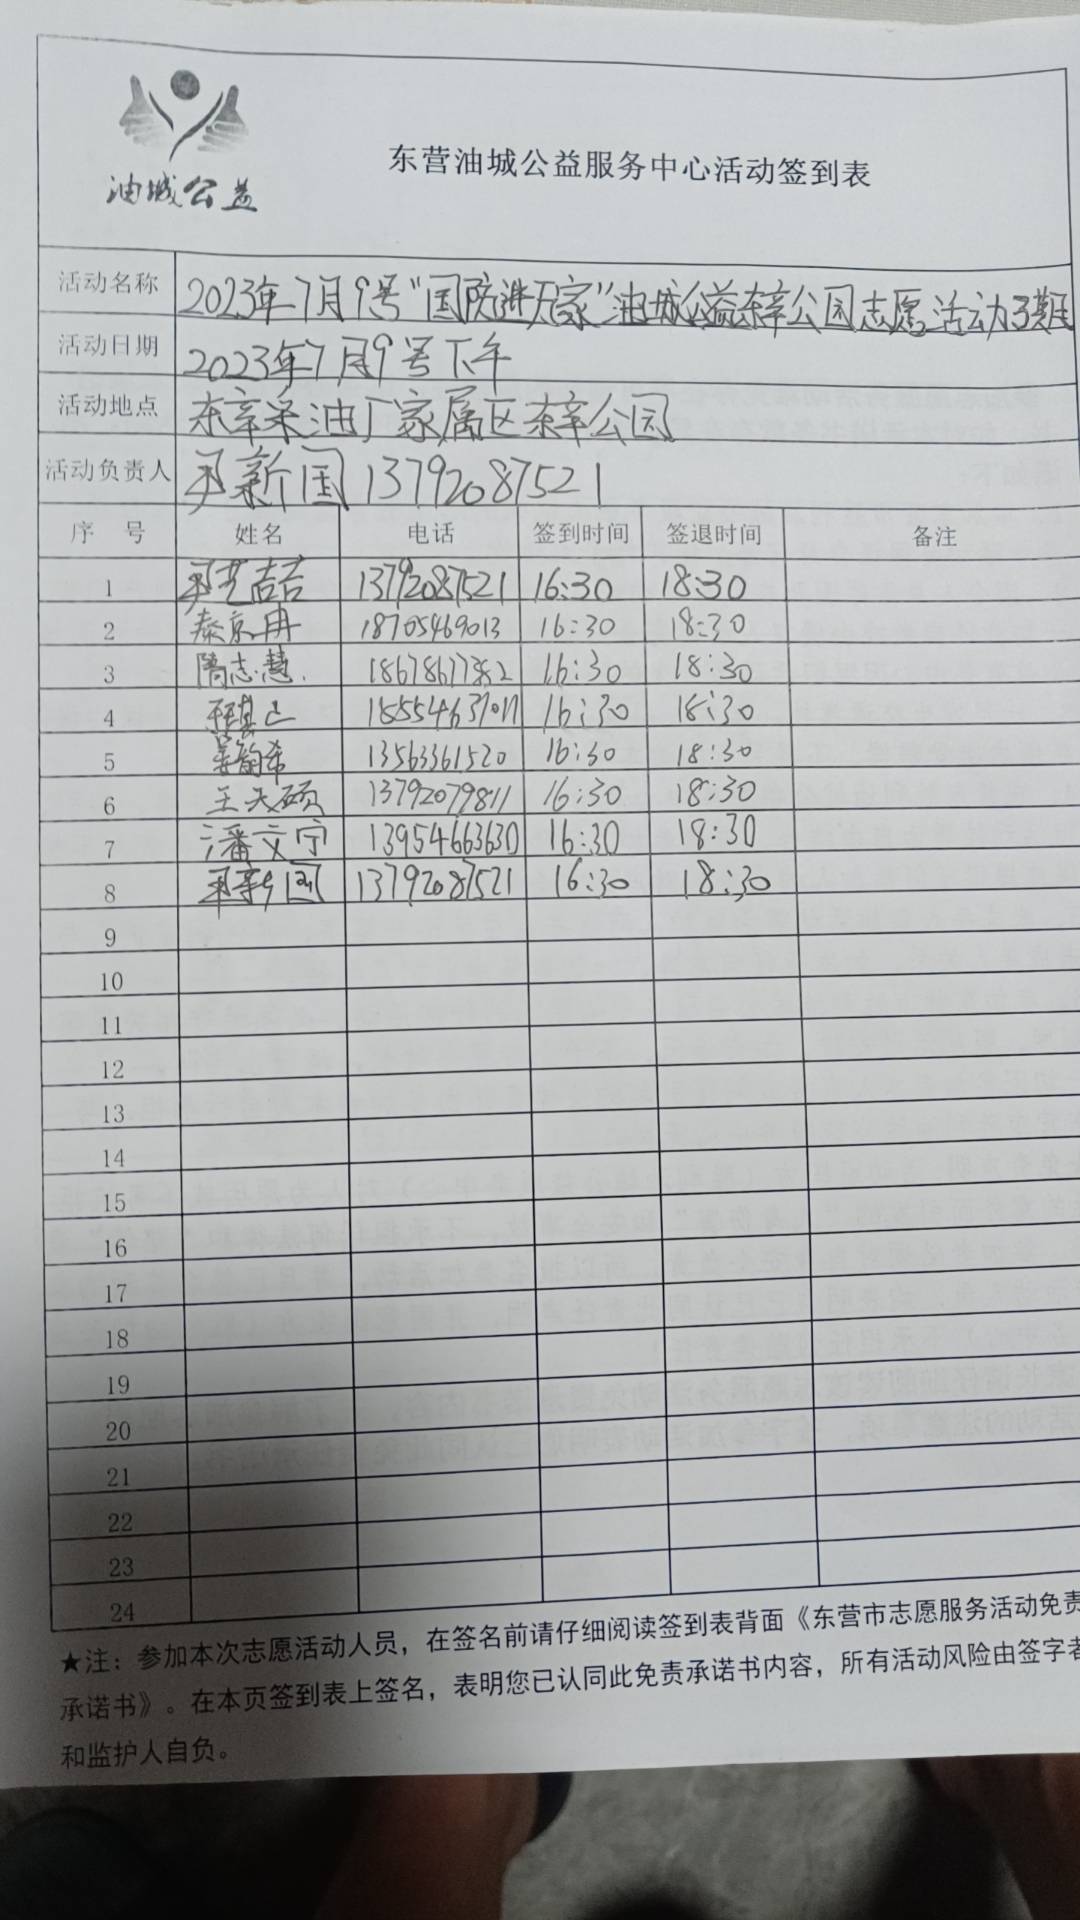 油城公益
东营油城公益服务中心活动签到表
活动名称 2023年7月9号“国防进万家”油城公益东辛公园志愿活动3期
活动日期 2023年7月9号下午
活动地点 东辛采油厂家属区东辛公园
活动负责人 新国 13792087521
序 号 姓名 电话 签到时间 签退时间 备注
1 13792087521 16:30 18:30
2 秦京冉 18705469013 16:30 18:30
3 隋志慧 16:30 18:30
4 16:30 18:30
5 13563361520 16:30 18:30
6 王天硕 13792079811 16:30 18:30
7 潘文宁 13954663630 16:30 18:30
8 新国 13792087521 16:30 18:30
9
10
11
12
13
14
15
16
17
18
19
20
21
22
23
24
★注：参加本次志愿活动人员，在签名前请仔细阅读签到表背面《东营市志愿服务活动免责
承诺书》。在本页签到表上签名，表明您已认同此免责承诺书内容，所有活动风险由签字者
和监护人自负。